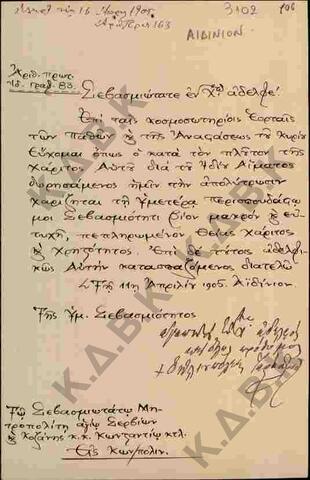 3102
106
ΑΪΔΙΝΙΟΝ.
Ἀριθ. πρωτ.
83
Σεβασμιώτατε ἐν Χῷ ἀδελφέ!
Ἐπὶ ταῖς κοσμοσωτηρίοις ἑορταῖς
τῶν Παθῶν κ τῆς Ἀναστάσεως τοῦ Κυρίου
Εὔχομαι ὅπως ὁ κατὰ τὸν πλοῦτον τῆς
Χάριτος Αὐτοῦ διὰ τοῦ Ἰδίου Αἵματος
δωρησάμενος ἡμῖν τὴν ἀπολύτρωσιν
χαρίζηται τῇ Ὑμετέρᾳ περισπουδάστῳ
μοι Σεβασμιότητι βίον μακρὸν κ εὐ-
τυχῆ, πεπληρωμένον θείας χάριτος
κ χρηστότητος. Ἐπὶ δὲ τούτοις ἀδελφι-
κῶς Αὐτὴν κατασπαζόμενος διατελῶ
Τῇ 11ῃ Ἀπριλίου 1905. Ἀϊδίνιον.
Τῆς Ὑμ. Σεβασμιότητος
ἀγαπητὸς ἐν Χῷ ἀδελφὸς
πρόθυμος
Τῷ Σεβασμιωτάτῳ Μη-
τροπολίτῃ ἁγίῳ Σερβίων
κ Κοζάνης κ. κ. Κωνσταντίῳ κτλ.
Εἰς Κων/πολιν.
Κ.Δ.Β.Κ